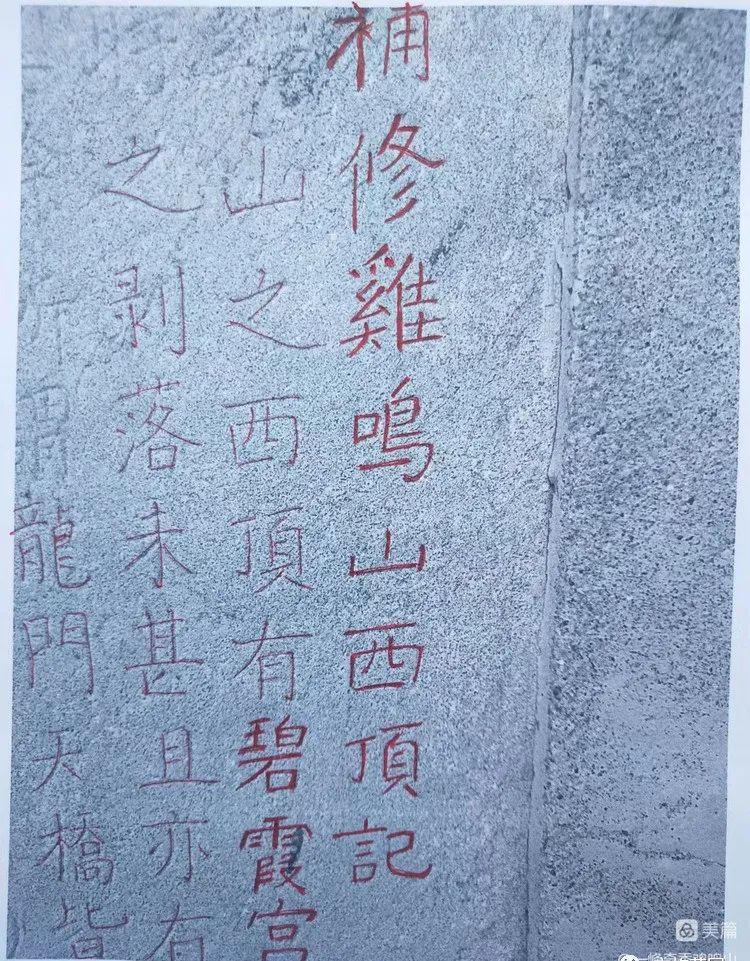 補修雞鳴山西頂記
山之西頂有碧霞宫
之剥落未甚且亦有
所謂龍門天橋皆
美篇